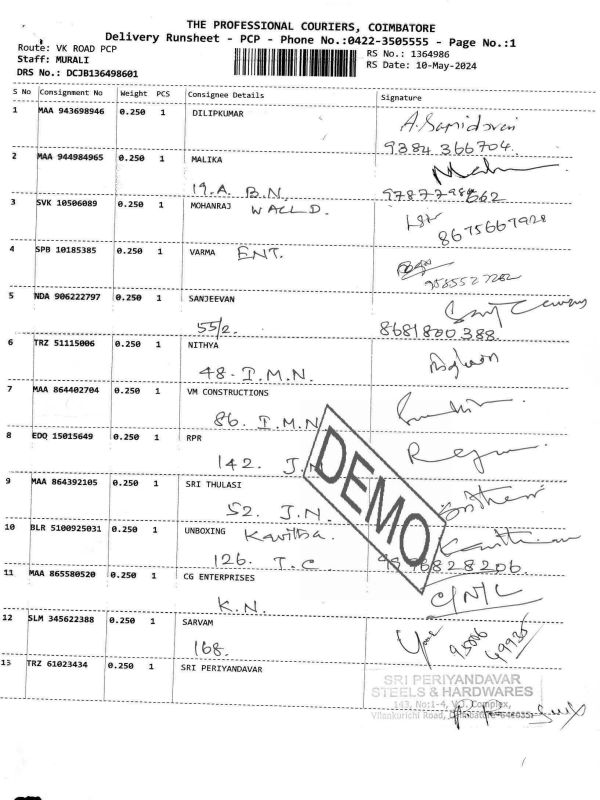 THE PROFESSIONAL COURIERS, COIMBATORE
Delivery Runsheet - PCP - Phone No.:0422-3505555 - Page No.:1
Route: VK ROAD PCP
RS No.: 1364986
Staff: MURALI
RS Date: 10-May-2024
DRS No.: DCJB136498601
S No Consignment No Weight PCS Consignee Details Signature
1 MAA 943698946 0.250 1 DILIPKUMAR
9384 366704.
2 MAA 944984965 0.250 1 MALIKA
19.A. B.N.
3 SVK 10506089 0.250 1 MOHANRAJ WALL D.
8675667928
4 SPB 10185385 0.250 1 VARMA ENT.
5 NDA 906222797 0.250 1 SANJEEVAN
55/2.
8681800388.
6 TRZ 51115006 0.250 1 NITHYA
48. I.M.N.
7 MAA 864402704 0.250 1 VM CONSTRUCTIONS
86. I.M.N
8 EDQ 15015649 0.250 1 RPR
142. J.N
9 MAA 864392105 0.250 1 SRI THULASI
52. J.N.
10 BLR 5100925031 0.250 1 UNBOXING Kavitha.
126. T.C
11 MAA 865580520 0.250 1 CG ENTERPRISES
K.N.
C/N/L
12 SLM 345622388 0.250 1 SARVAM
168.
13 TRZ 61023434 0.250 1 SRI PERIYANDAVAR
SRI PERIYANDAVAR
STEELS & HARDWARES
143, No:1-4, V.J. Complex,
Vilankurichi Road, Coimbatore-641035
DEMO